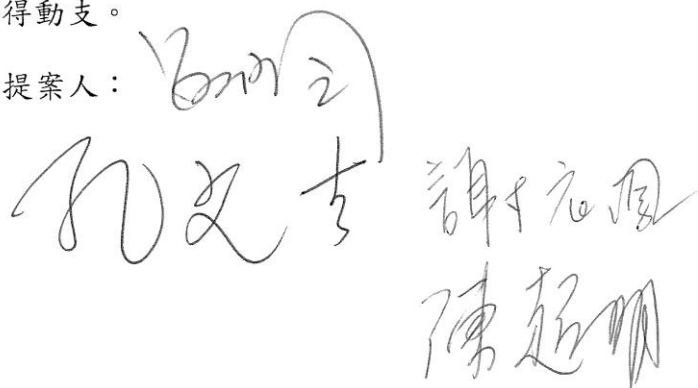 得動支。
提案人：
孔文吉
謝衣鳯
陳超明